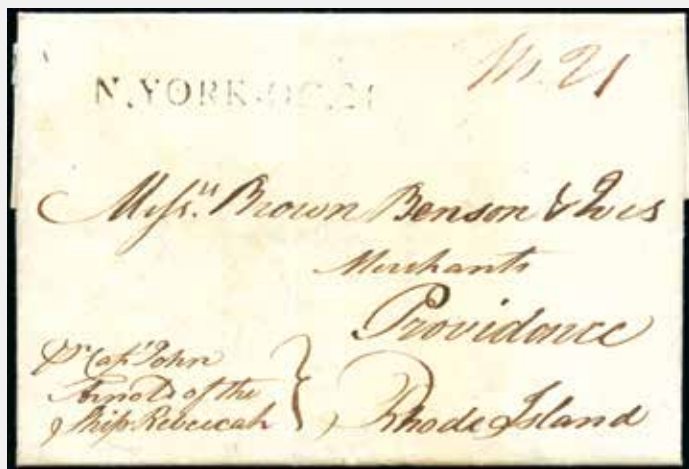 N.YORK·OC.21
21
Messrs. Brown Benson & Ives
Merchants
Providence
Rhode Island
Pr Capt John
Arnold of the
Ship Rebeccah